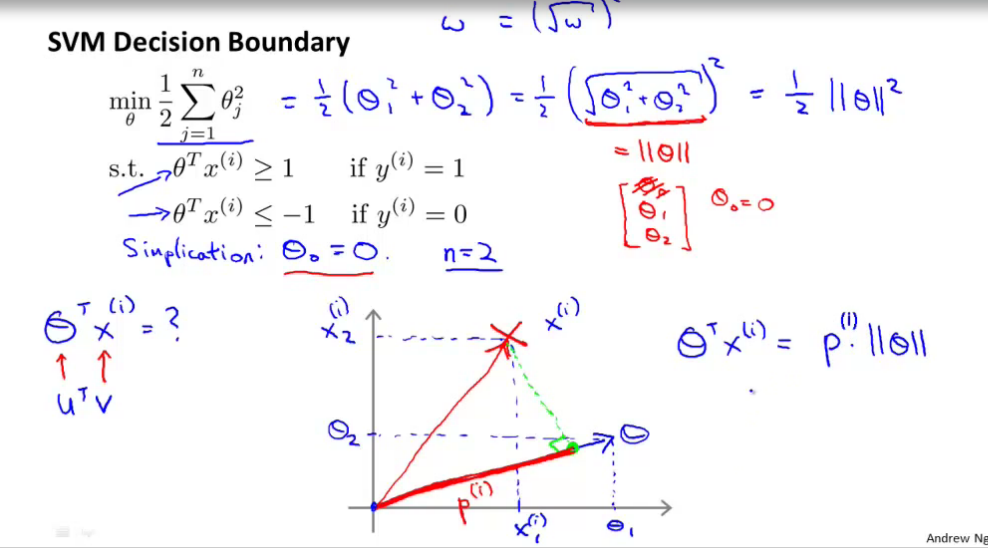 ω = (√ω)²
SVM Decision Boundary
min_θ 1/2 Σ_{j=1}^{n} θ_j² = 1/2 (θ₁² + θ₂²) = 1/2 (√(θ₁² + θ₂²))² = 1/2 ||θ||²
= ||θ||
s.t. θᵀx⁽ⁱ⁾ ≥ 1 if y⁽ⁱ⁾ = 1
θᵀx⁽ⁱ⁾ ≤ −1 if y⁽ⁱ⁾ = 0
[θ₀ θ₁ θ₂] θ₀ = 0
Simplication: θ₀ = 0. n=2
θᵀx⁽ⁱ⁾ = ?
uᵀv
x₂⁽ⁱ⁾
x⁽ⁱ⁾
θ₂
θ
p⁽ⁱ⁾
x₁⁽ⁱ⁾
θ₁
θᵀx⁽ⁱ⁾ = p⁽ⁱ⁾ · ||θ||
Andrew Ng